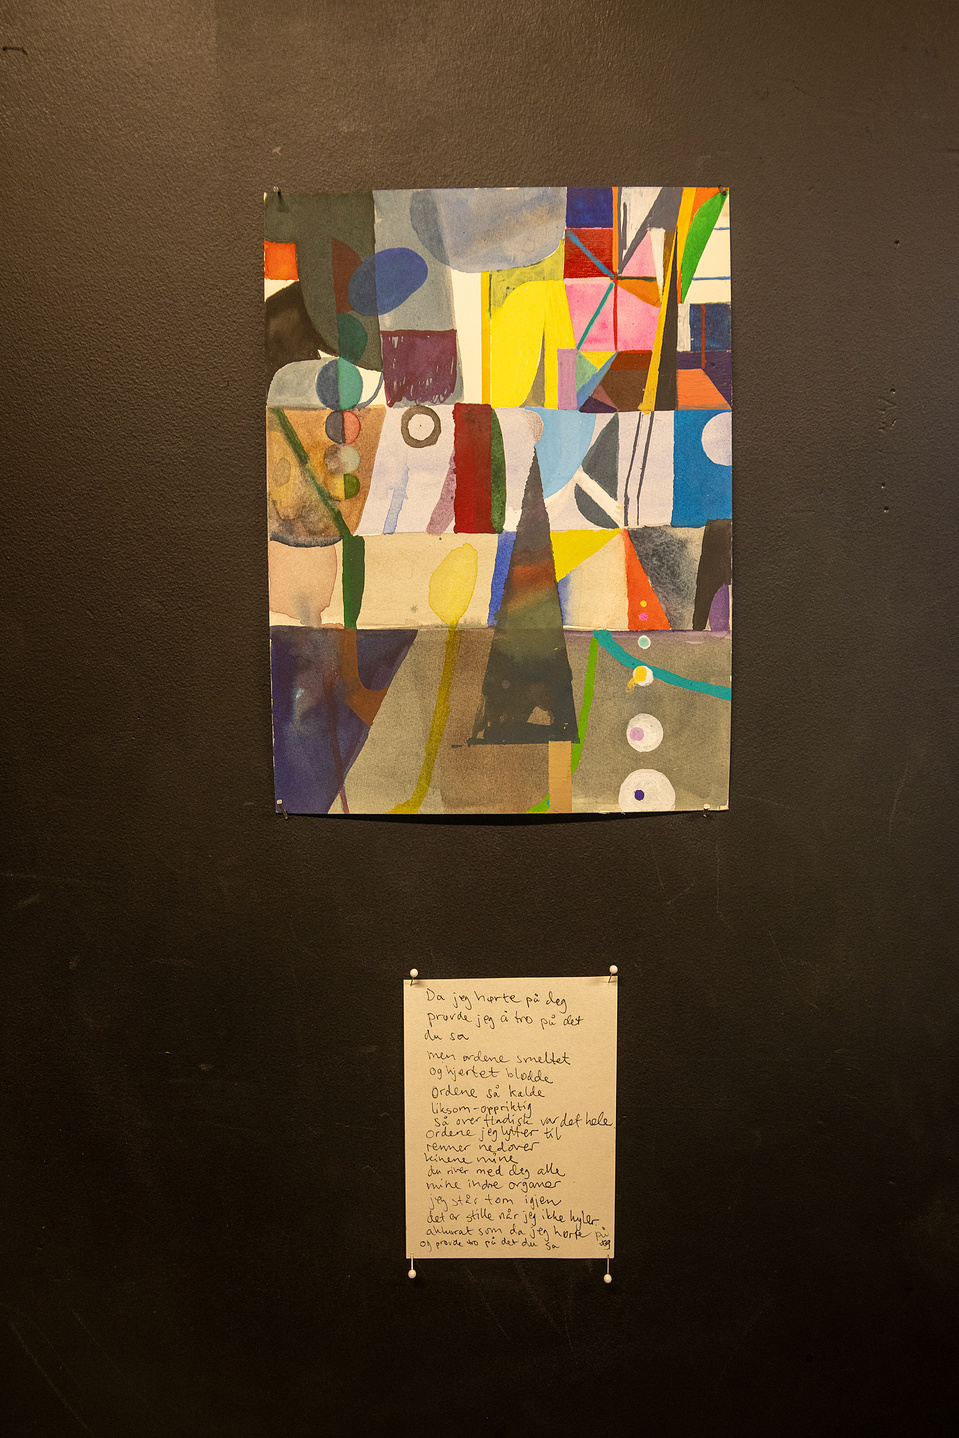 Da jeg hørte på deg
prøvde jeg å tro på det
du sa
men ordene smeltet
og hjertet blødde
Ordene så kalde
liksom-oppriktig
så overfladisk var det hele
Ordene jeg lytter til
renner nedover
kinene mine
du river med deg alle
mine indre organer
jeg står tom igjen
det er stille når jeg ikke hyler
akkurat som da jeg hørte på
deg
og prøvde tro på det du sa